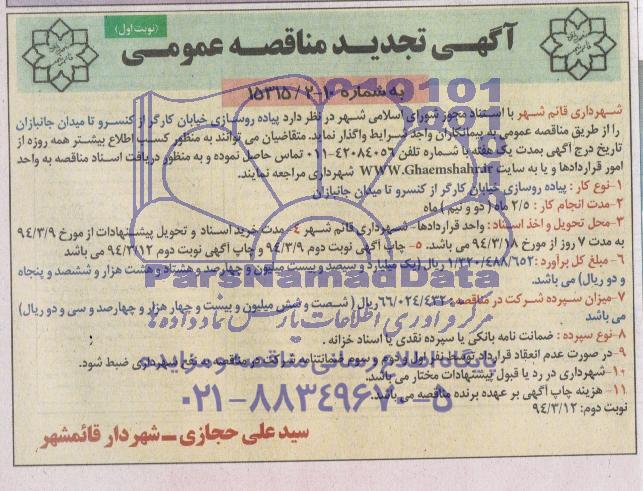 (نوبت اول)
آگهی تجدید مناقصه عمومی
به شماره ۱۰-۲/۱۵۳۱۵
شهرداری قائم شهر با استناد مجوز شورای اسلامی شهر در نظر دارد پیاده روسازی خیابان کارگر از کنسرو تا میدان جانبازان
را از طریق مناقصه عمومی به پیمانکاران واجد شرایط واگذار نماید. متقاضیان می توانند به منظور کسب اطلاع بیشتر همه روزه از
تاریخ درج آگهی بمدت یک هفته با شماره تلفن ۴۲۰۸۴۰۵۶-۰۱۱ تماس حاصل نموده و به منظور دریافت اسناد مناقصه به واحد
امور قراردادها و یا به سایت WWW.Ghaemshahr.ir شهرداری مراجعه نمایند.
۱-نوع کار : پیاده روسازی خیابان کارگر از کنسرو تا میدان جانبازان
۲-مدت انجام کار : ۲/۵ ماه ( دو و نیم ) ماه
۳-محل تحویل و اخذ اسناد : واحد قراردادها- شهرداری قائم شهر ۴- مدت خرید اسناد و تحویل پیشنهادات از مورخ ۹۴/۳/۹
به مدت ۷ روز از مورخ ۹۴/۳/۱۸ می باشد. ۵- چاپ آگهی نوبت دوم ۹۴/۳/۹ و چاپ آگهی نوبت دوم ۹۴/۳/۱۲ می باشد
۶- مبلغ کل برآورد : ۱/۳۲۰/۴۸۸/۶۵۲ ریال (یک میلیارد و سیصد و بیست میلیون و چهارصد و هشتاد و هشت هزار و ششصد و پنجاه
و دو ریال) می باشد.
۷-میزان سپرده شرکت در مناقصه: ۶۶/۰۲۴/۴۳۲ ریال ( شصت و شش میلیون و بیست و چهار هزار و چهارصد و سی و دو ریال)
می باشد
۸-نوع سپرده : ضمانت نامه بانکی یا سپرده نقدی یا اسناد خزانه .
۹-در صورت عدم انعقاد قرارداد توسط نفر اول و دوم و سوم ضمانتنامه شرکت در مناقصه به نفع شهرداری ضبط شود.
۱۰-شهرداری در رد یا قبول پیشنهادات مختار می باشد.
۱۱- هزینه چاپ آگهی بر عهده برنده مناقصه می باشد.
نوبت دوم: ۹۴/۳/۱۲
سید علی حجازی – شهردار قائمشهر
ParsNamadData
مرکز فرآوری اطلاعات پارس نماد داده ها
پایگاه اطلاع رسانی مناقصه و مزایده
۰۲۱-۸۸۳۴۹۶۷۰-۵